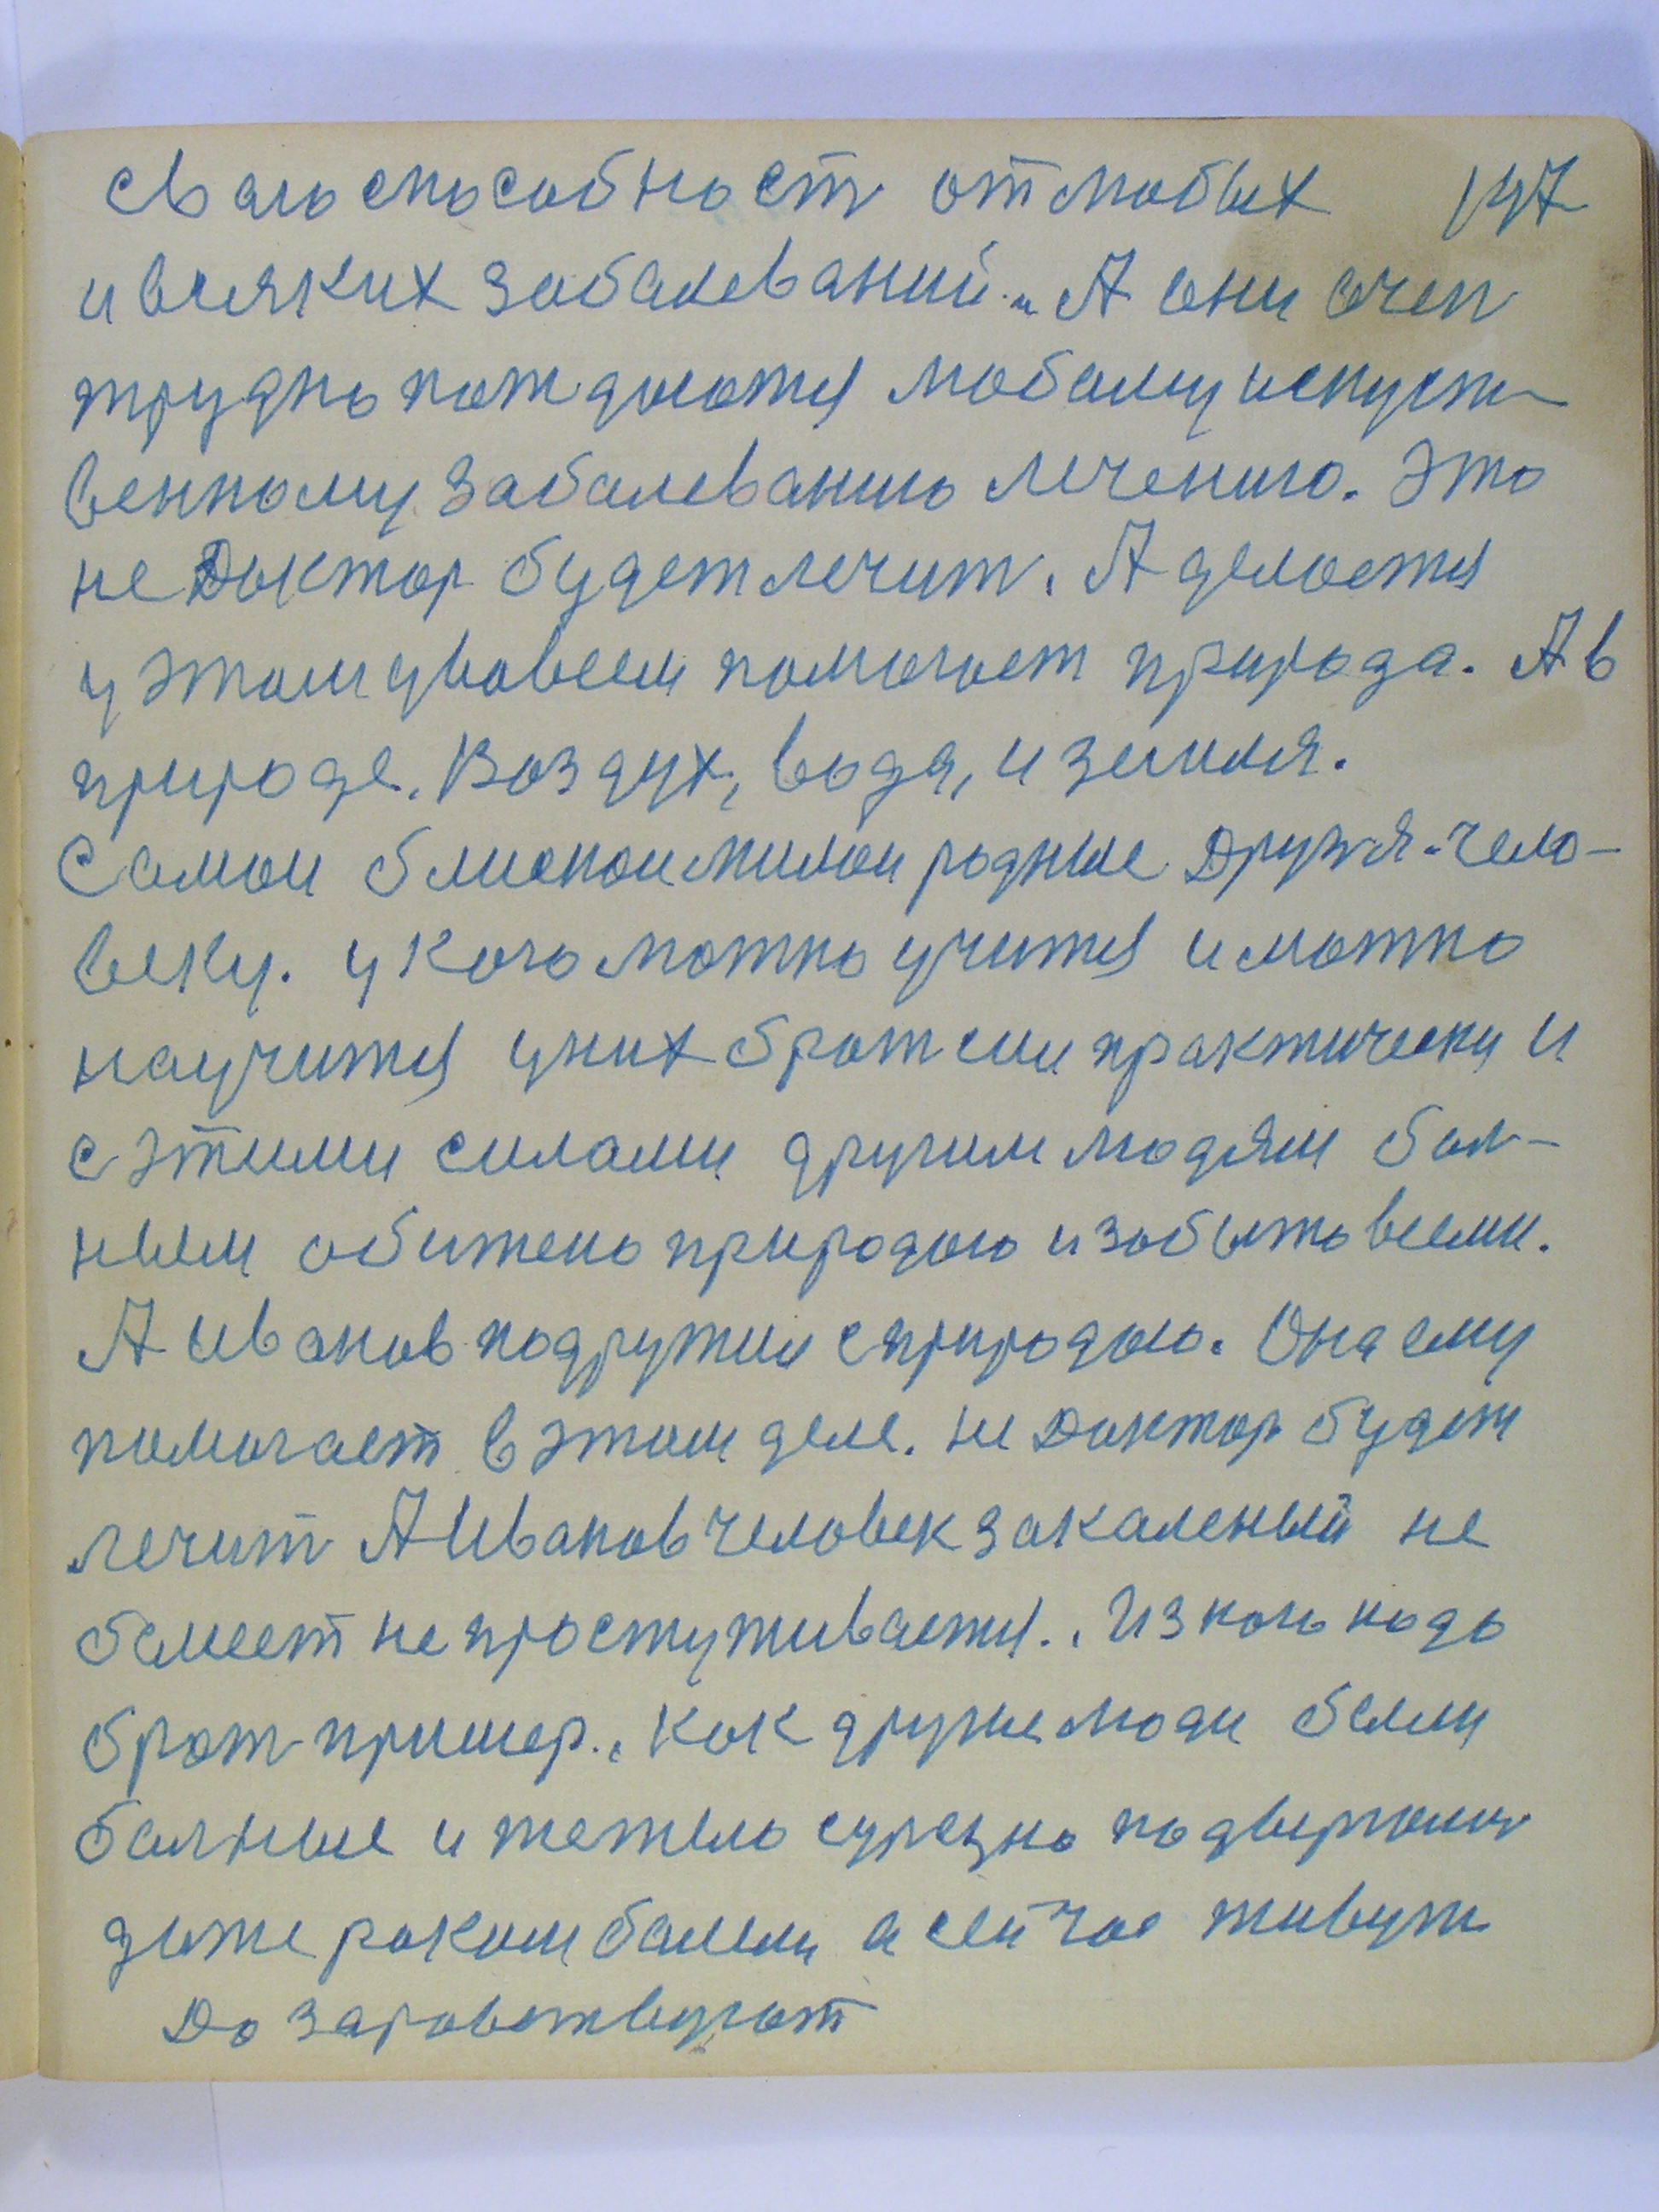 сваю способност от любых 147
и всяких заболеваний. А они очен
трудно потдаются любому искуст-
венному заболеванию лечению. Это
не Доктор будет лечит. А делается
у этому вовсем помогает природа. А в
природе. Воздух, вода, и земля.
Самои блискои милои родные Друзя чело-
веку. у кого можно учится и можно
научится у них брат сили практически и
с этими силами другим людям бол-
ным обижено природою и забыто всеми.
А иванов подружил с природою. Она ему
помогает в этом деле. не Доктор будет
лечит А Иванов человек закаленый не
болеет не простуживается. Из кого надо
брат пример. Как други люди были
болные и тежело сурезно подвергались
даже раком болели а сейчас живут
До заровствуют